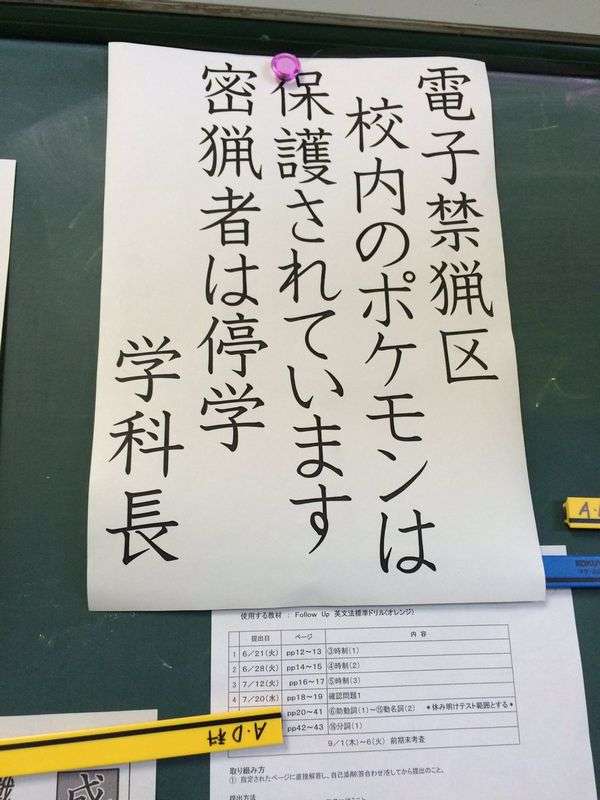 電子禁猟区
校内のポケモンは
保護されています
密猟者は停学
学科長
使用する教材 : Follow Up 英文法標準ドリル(オレンジ)
提出日 ページ 内 容
1 6/21(火) pp12～13 ③時制(1)
2 6/28(火) pp14～15 ④時制(2)
3 7/12(火) pp16～17 ⑤時制(3)
4 7/20(水) pp18～19 確認問題1
pp20～41 ⑥助動詞(1)～⑮動名詞(2) *休み明けテスト範囲とする*
pp42～43 ⑯分詞(1)
9/1(木)～6(火) 前期末考査
取り組み方
① 指定されたページに直接解答し、自己添削(答合わせ)をしてから提出のこと。
提出方法
A・D科